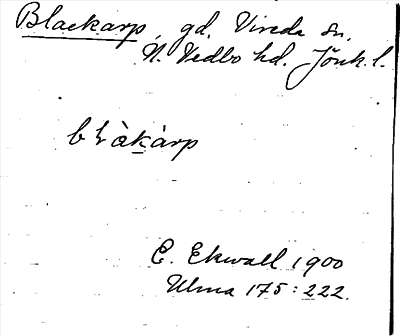 Blackarp, gd, Vireda sn,
N. Vedbo hd. Jönk. l.
bλ̀akàrp
E. Ekwall 1900
Ulma 175:222.